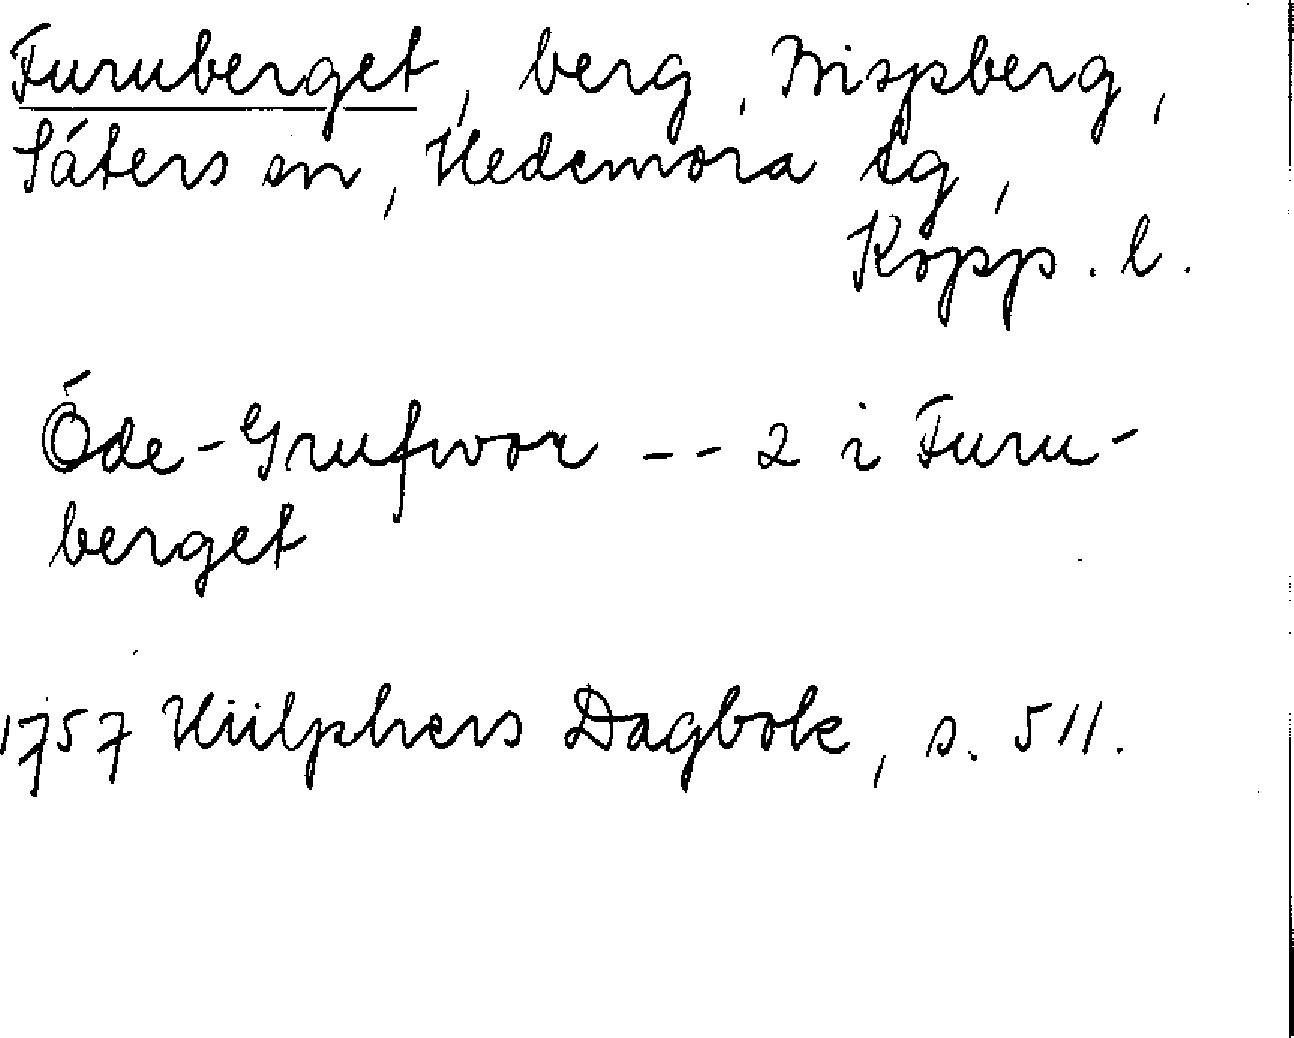 Furuberget, berg, Bispberg,
Säters sn, Hedemora tg,
Kopp. l.
Öde-Grufwor -- 2 i Furu-
berget
1757 Hülphers Dagbok, s. 511.